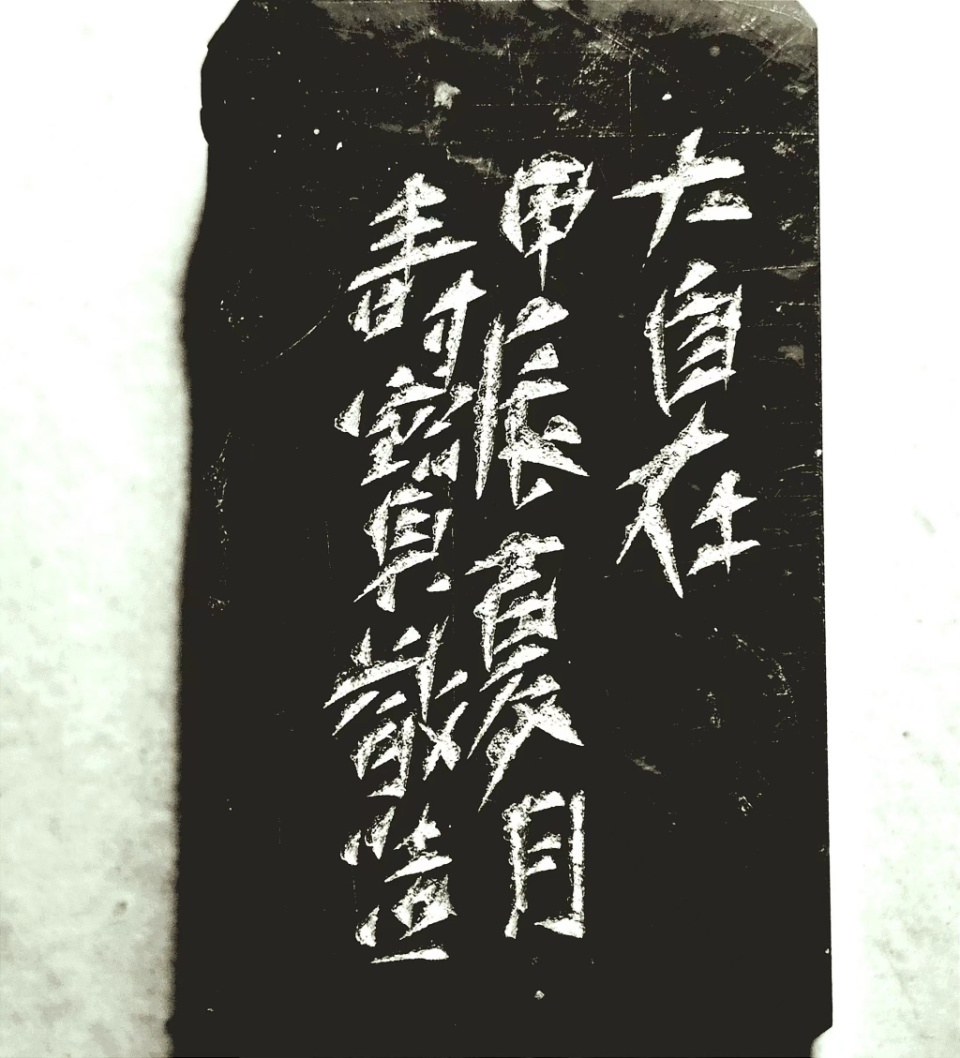 大自在
甲辰夏月
壽寶敬造